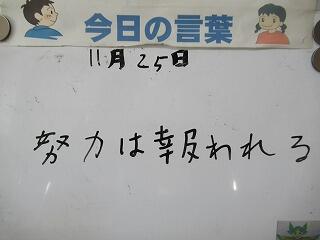 今日の言葉
11月25日
努力は報われる